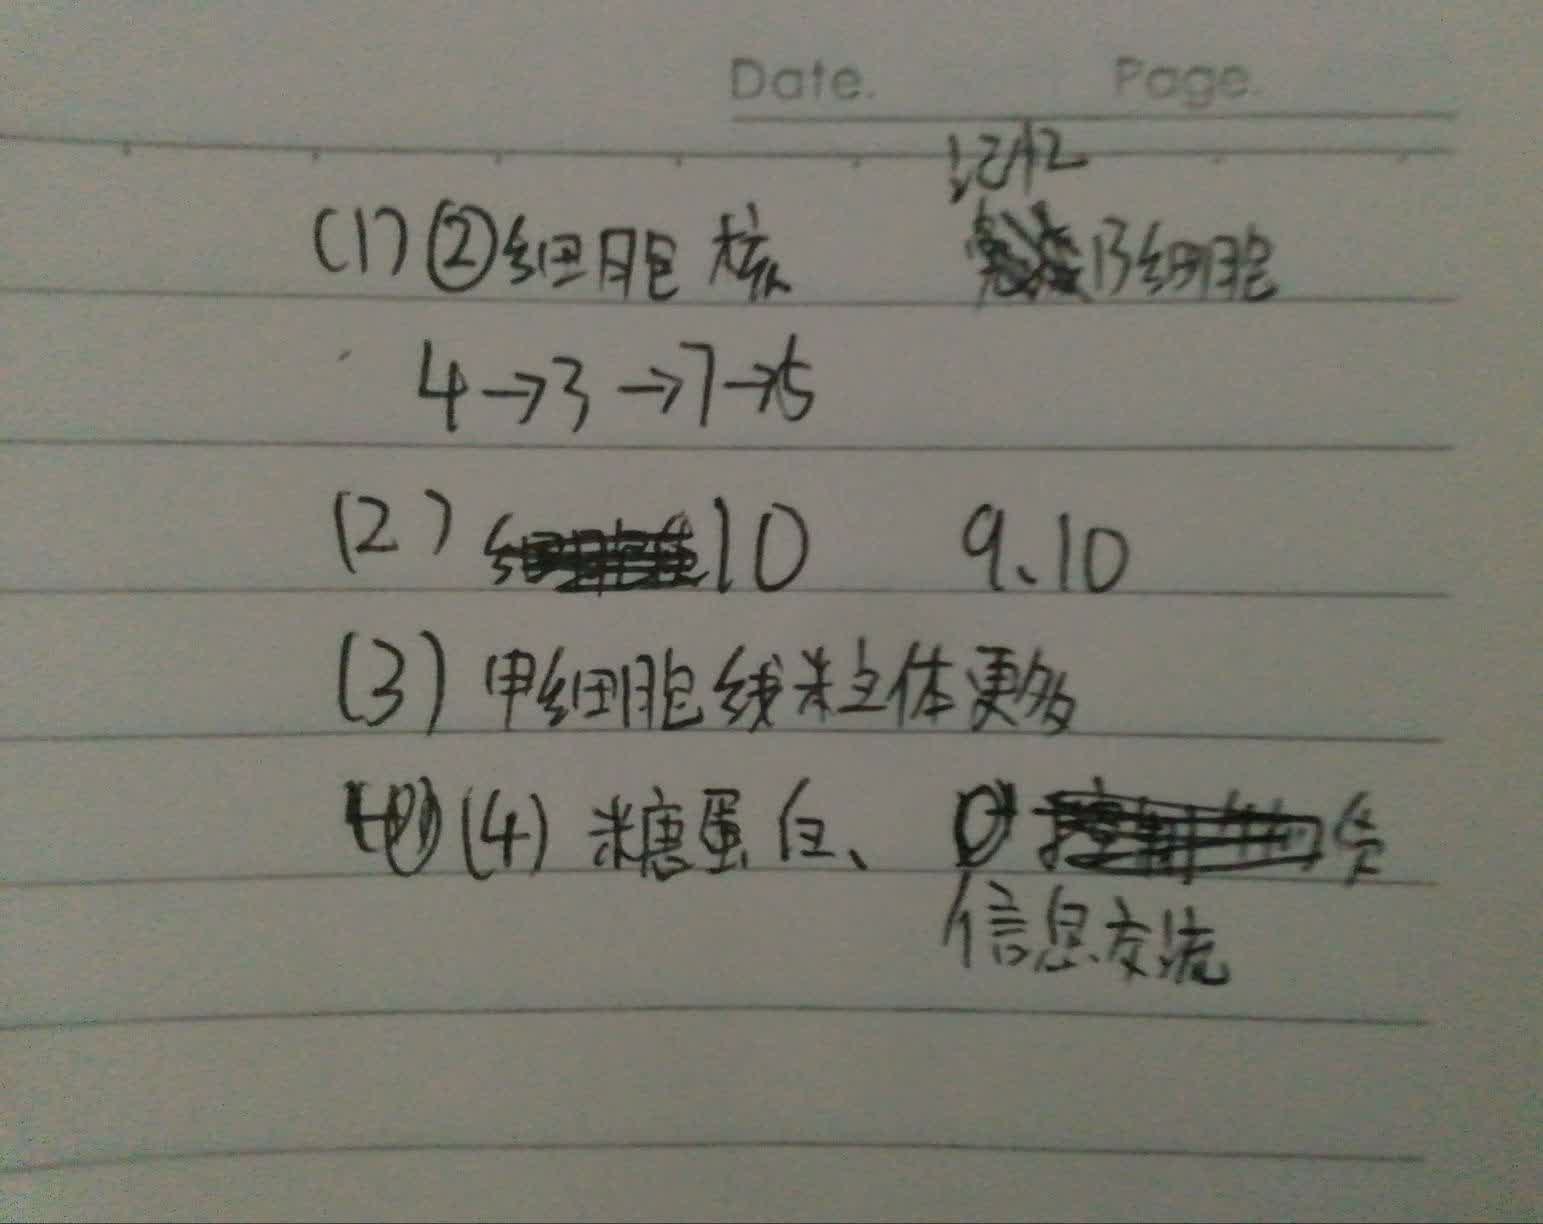 Date. Page.
记忆
(1) ②细胞核 B细胞
4→3→7→5
(2) 10 9、10
(3) 甲细胞线粒体更多
(4) 糖蛋白、
信息交流